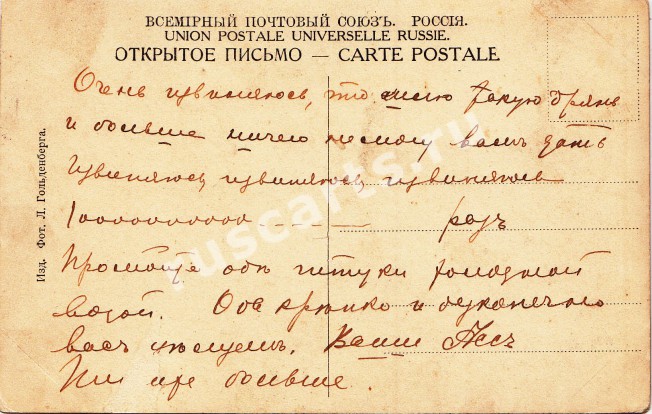 ВСЕМІРНЫЙ ПОЧТОВЫЙ СОЮЗЪ. РОССІЯ.
UNION POSTALE UNIVERSELLE RUSSIE.
ОТКРЫТОЕ ПИСЬМО — CARTE POSTALE
Изд. Фот. Л. Гольденберга.
Очень извиняюсь, что шлю такую дрянь
и больше ничего не могу вамъ дать
Извиняюсь, извиняюсь, извиняюсь
разъ
штуки холодной
водой. Оба крѣпко и безконечно
васъ цѣлуемъ. Ваши
больше.
ruscarts.ru